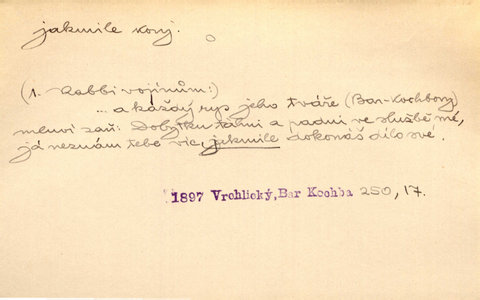 jakmile konj.
(1. Rabbi vojínům:)
... a každý rys jeho tváře (Bar-Kochbovy)
mluví zaň: Dobytku táhni a padni ve službě mé,
já neznám tebe víc, jakmile dokonáš dílo své.
1897 Vrchlický, Bar Kochba 250, 17.